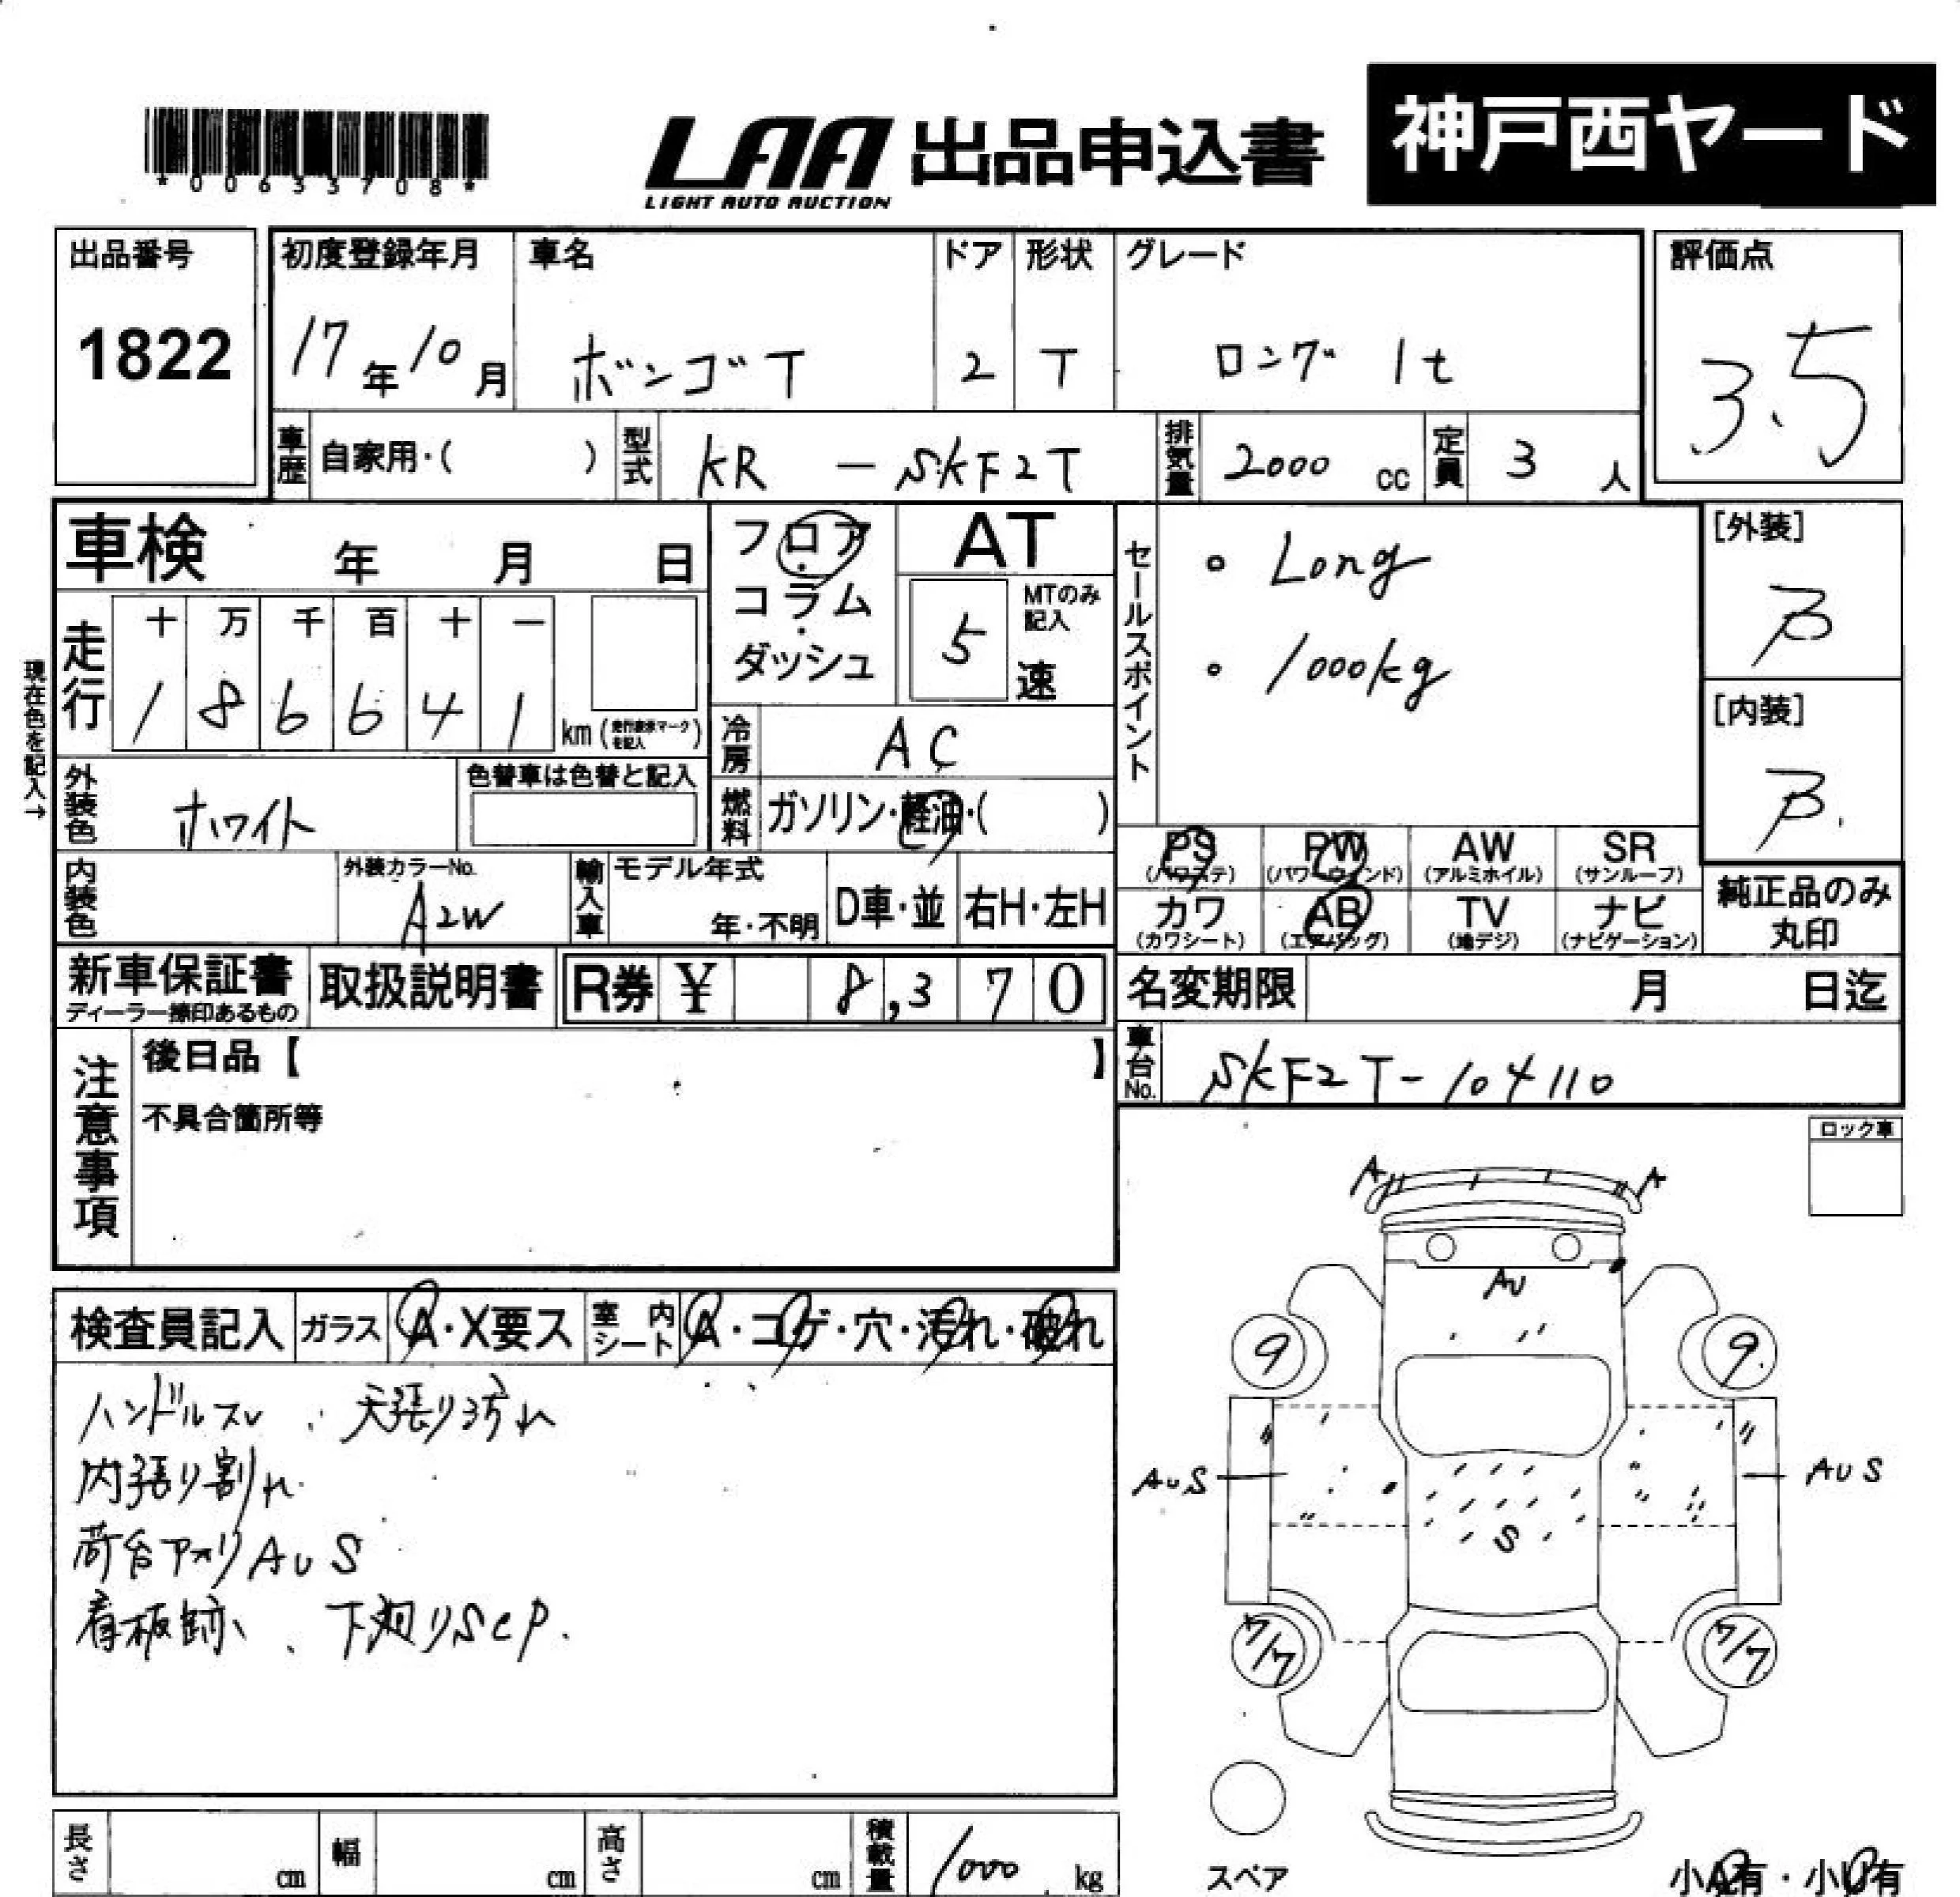 *00633708*
LAA 出品申込書
LIGHT AUTO AUCTION
神戸西ヤード
出品番号
1822
初度登録年月
17年10月
車名
ボンゴT
ドア
2
形状
T
グレード
ロング 1t
評価点
3.5
車歴 自家用・( )
型式 KR - SKF2T
排気量 2000 cc
定員 3 人
車検 年 月 日
現在色を記入→
走行
十 万 千 百 十 一
1 8 6 6 4 1 km (走行距離マークを記入)
フロア・コラム・ダッシュ
AT
5 速
MTのみ記入
冷房 AC
燃料 ガソリン・軽油・( )
外装色 ホワイト
色替車は色替と記入
内装色
外装カラーNo.
A2W
輸入車
モデル年式
年・不明
D車・並
右H・左H
セールスポイント
。Long
。1000kg
[外装]
B
[内装]
B.
PS (パワステ)
PW (パワーウィンド)
AW (アルミホイル)
SR (サンルーフ)
カワ (カワシート)
AB (エアバッグ)
TV (地デジ)
ナビ (ナビゲーション)
純正品のみ丸印
新車保証書
ディーラー捺印あるもの
取扱説明書
R券 ¥ 8,370
名変期限 月 日迄
車台No. SKF2T-104110
注意事項
後日品【 】
不具合箇所等
ロック車
検査員記入
ガラス A・X要ス
室内シート A・コゲ・穴・汚れ・破れ
ハンドルスレ、天張り汚れ
内張り割れ
荷台アオリAUS
看板跡、下廻りSCP.
A A
AU
9 9
AUS AUS
S
7/7 7/7
スペア
小A有・小U有
長さ cm
幅 cm
高さ cm
積載量 1000 kg